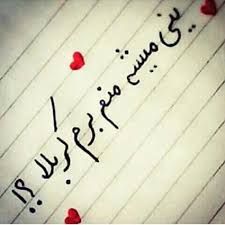 ینی میشه منم برم کربلا ؟!!